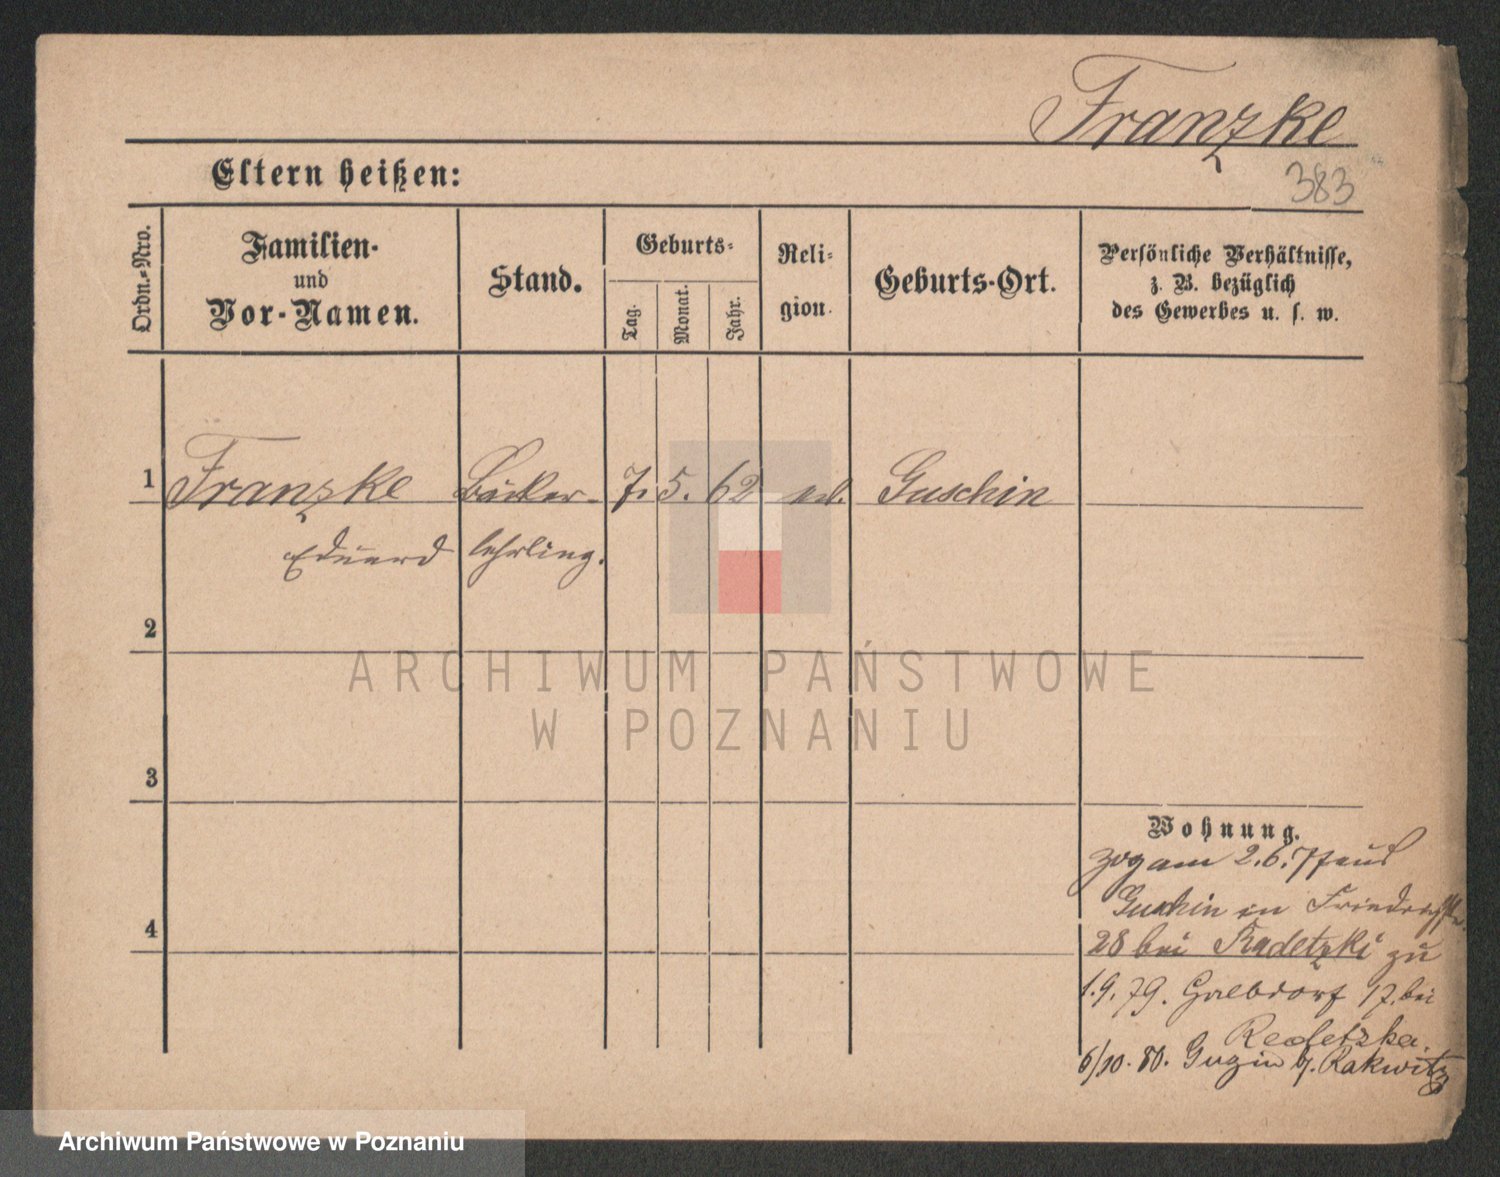 Franzke
383
Eltern heißen:
Ordn.-Nro.
Familien-
und
Vor-Namen.
Stand.
Geburts-
Tag.
Monat.
Jahr.
Reli-
gion.
Geburts-Ort.
Persönliche Verhältnisse,
z. B. bezüglich
des Gewerbes u. s. w.
1 Franzke Bäcker- 7. 5. 62 Guschin
Eduard lehrling.
2
ARCHIWUM PAŃSTWOWE
W POZNANIU
3
Wohnung.
zog am 2.6.77 aus
Guschin in Friedrichstr.
4
28 bei Radetzki zu
1.9.79. 17. bei
Radetzka.
6/10. 80. Rakwitz
Archiwum Państwowe w Poznaniu